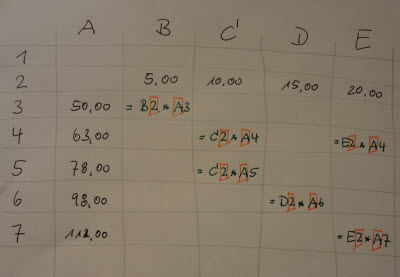 A B C D E
1
2 5,00 10,00 15,00 20,00
3 50,00 = B2 * A3
4 63,00 = C2 * A4 = E2 * A4
5 78,00 = C2 * A5
6 98,00 = D2 * A6
7 112,00 = E2 * A7